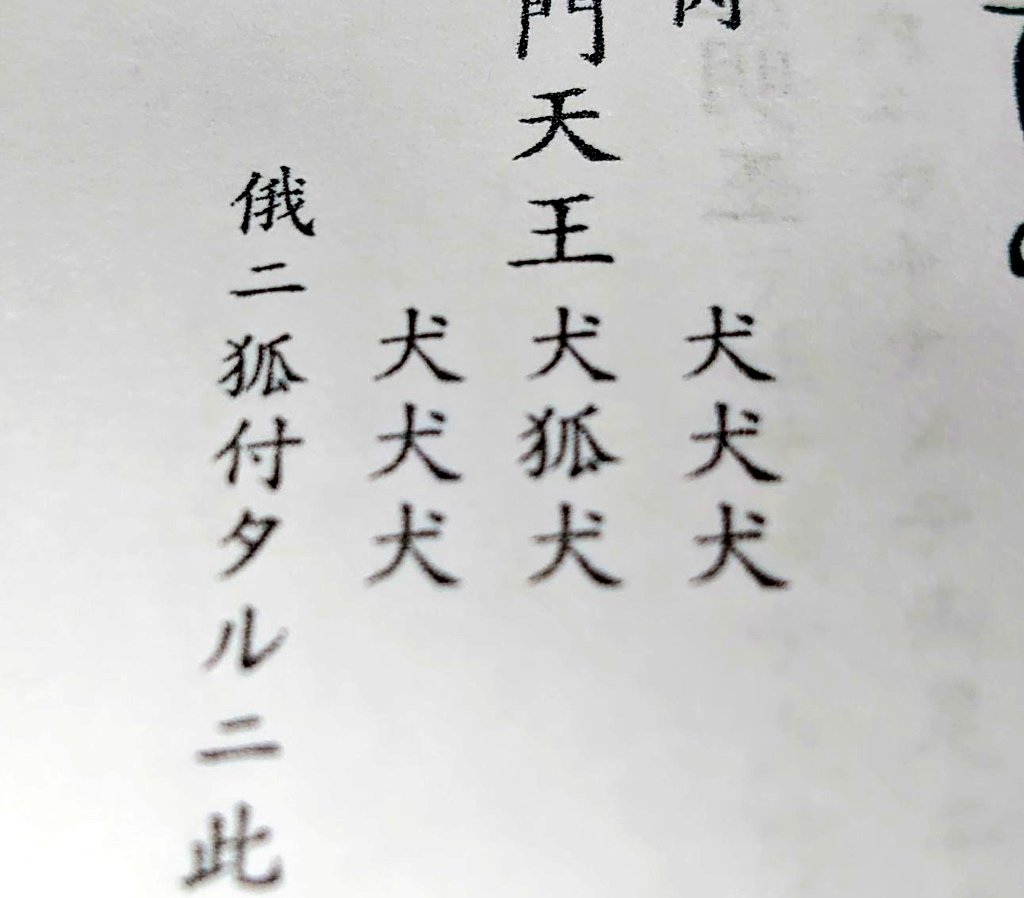 犬犬犬
門天王犬狐犬
犬犬犬
俄ニ狐付タルニ此